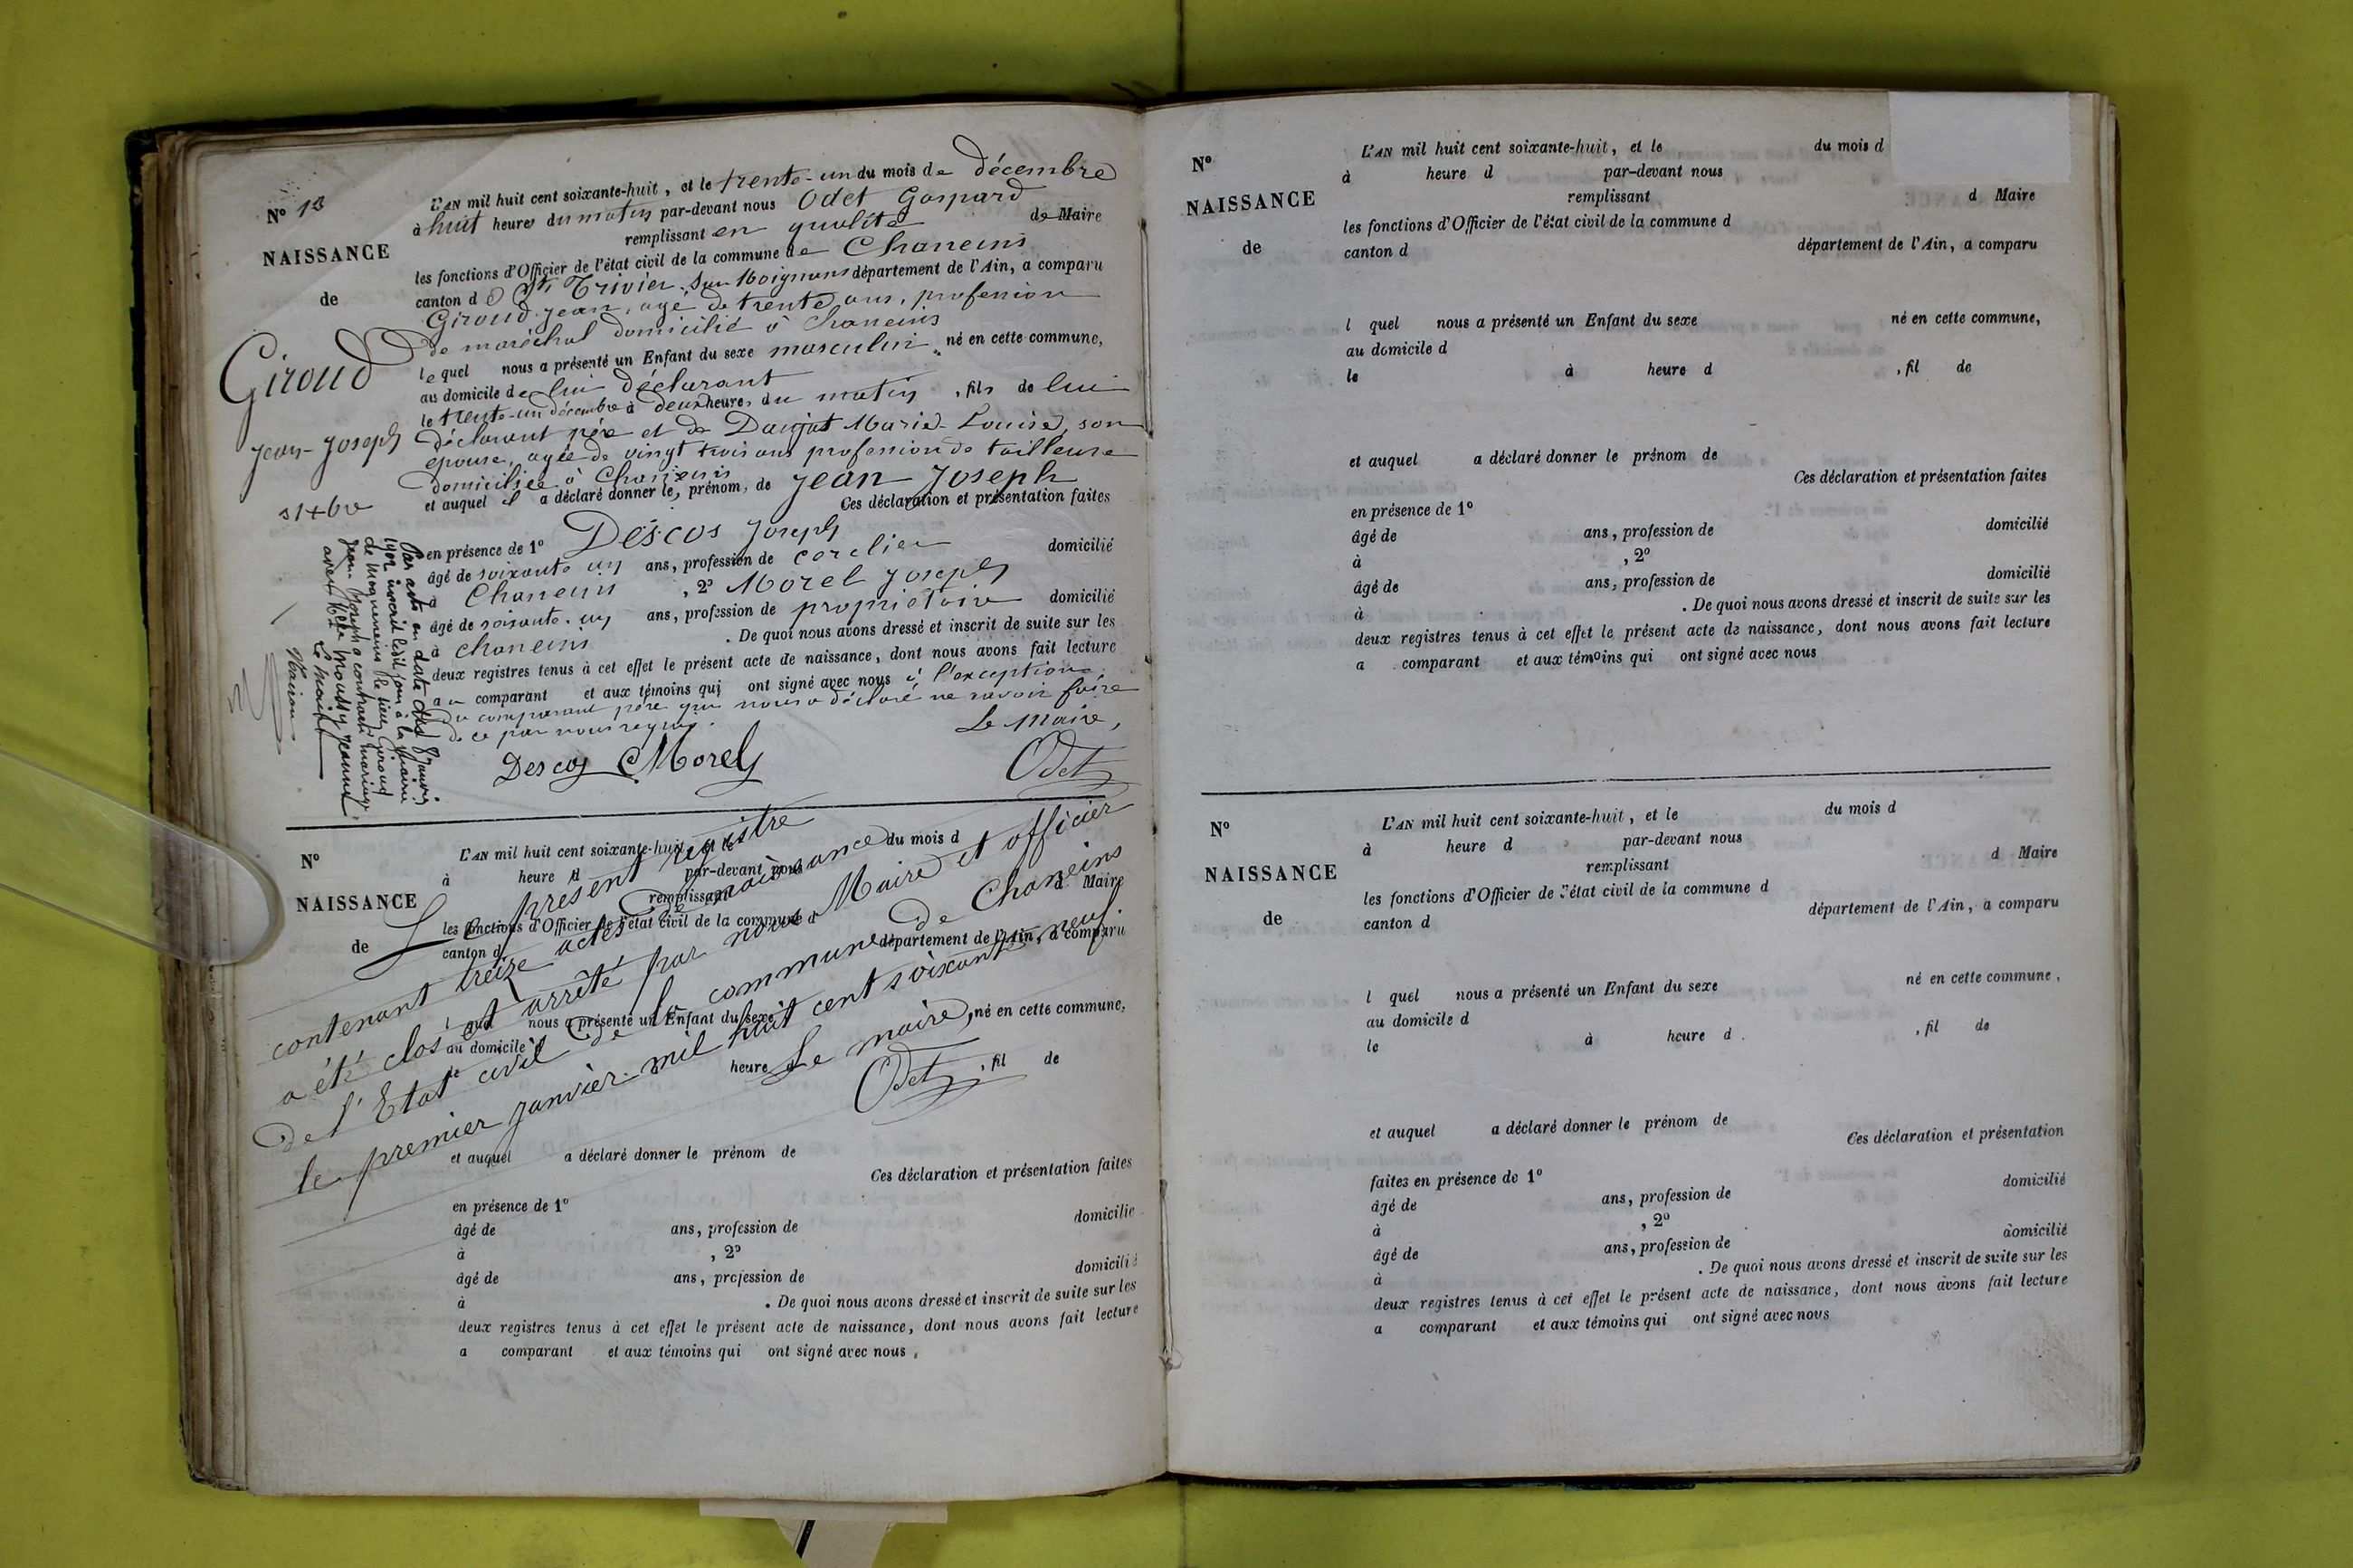 N° 13
NAISSANCE
de
Giroud
Jean-Joseph
31 Xbre
L'AN mil huit cent soixante-huit, et le trente-un du mois de décembre
à huit heures du matin par-devant nous Odet Gaspard
remplissant en qualité de Maire
les fonctions d'Officier de l'état civil de la commune de Chaneins
canton d St Trivier sur Moignans département de l'Ain, a comparu
Giroud Jean, agé de trente ans, profession
de maréchal domicilié à Chaneins
lequel nous a présenté un Enfant du sexe masculin né en cette commune,
au domicile de lui déclarant
le trente-un décembre à deux heures du matin, fils de lui
déclarant père et de Marie-Louise, son
épouse, agée de vingt trois ans profession de tailleuse
domiciliée à Chaneins
et auquel il a déclaré donner le, prénom, de Jean Joseph
Ces déclaration et présentation faites
en présence de 1° Descos Joseph
âgé de soixante un ans, profession de domicilié
à Chaneins, 2° Morel Joseph
âgé de soixante-un ans, profession de propriétaire domicilié
à Chaneins. De quoi nous avons dressé et inscrit de suite sur les
deux registres tenus à cet effet le présent acte de naissance, dont nous avons fait lecture
au comparant et aux témoins qui ont signé avec nous à l'exception
du comparant père qui nous a déclaré ne savoir faire
de ce par nous requis.
Le Maire,
Descos Morel Odet
Par acte en date du 8 janvier
inscrit ledit jour à la mairie
de le sieur Giroud
Jean Joseph a contracté mariage
avec Melle Jeanne
Le Maire
N°
NAISSANCE
de
L'AN mil huit cent soixante-huit, et le du mois d
à heure d par-devant nous
remplissant d Maire
les fonctions d'Officier de l'état civil de la commune d
canton d département de l'Ain, a comparu
l quel nous a présenté un Enfant du sexe né en cette commune,
au domicile d
le heure d, fil de
Le présent registre
contenant treize actes de naissance
a été clos et arrêté par nous Maire et officier
de l'Etat civil de la commune de Chaneins
le premier janvier mil huit cent soixante neuf.
Le maire,
Odet
et auquel a déclaré donner le prénom de
Ces déclaration et présentation faites
en présence de 1°
âgé de ans, profession de domicilié
à , 2°
âgé de ans, profession de domicilié
à . De quoi nous avons dressé et inscrit de suite sur les
deux registres tenus à cet effet le présent acte de naissance, dont nous avons fait lecture
a comparant et aux témoins qui ont signé avec nous.
N°
NAISSANCE
de
L'AN mil huit cent soixante-huit, et le du mois d
à heure d par-devant nous
remplissant d Maire
les fonctions d'Officier de l'état civil de la commune d
canton d département de l'Ain, a comparu
l quel nous a présenté un Enfant du sexe né en cette commune,
au domicile d
le à heure d , fil de
et auquel a déclaré donner le prénom de
Ces déclaration et présentation faites
en présence de 1°
âgé de ans, profession de domicilié
à , 2°
âgé de ans, profession de domicilié
à . De quoi nous avons dressé et inscrit de suite sur les
deux registres tenus à cet effet le présent acte de naissance, dont nous avons fait lecture
a comparant et aux témoins qui ont signé avec nous
N°
NAISSANCE
de
L'AN mil huit cent soixante-huit, et le du mois d
à heure d par-devant nous
remplissant d Maire
les fonctions d'Officier de l'état civil de la commune d
canton d département de l'Ain, a comparu
l quel nous a présenté un Enfant du sexe né en cette commune,
au domicile d
le à heure d , fil de
et auquel a déclaré donner le prénom de
Ces déclaration et présentation
faites en présence de 1°
âgé de ans, profession de domicilié
à , 2°
âgé de ans, profession de domicilié
à . De quoi nous avons dressé et inscrit de suite sur les
deux registres tenus à cet effet le présent acte de naissance, dont nous avons fait lecture
a comparant et aux témoins qui ont signé avec nous